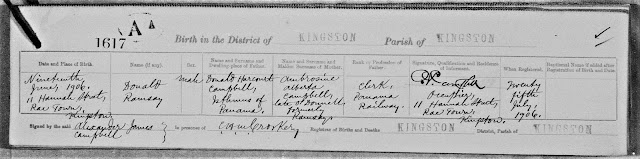 A
1617
Birth in the District of KINGSTON Parish of KINGSTON
Date and Place of Birth
Name (if any).
Sex.
Name and Surname and Dwelling-place of Father.
Name and Surname and Maiden Surname of Mother.
Rank or Profession of Father.
Signature, Qualification and Residence of Informant.
When Registered.
Baptismal Name if added after Registration of Birth and Date
Nineteenth
June, 1906.
11 Hannah Street,
Rae Town,
Kingston
Donald
Ramsay
Male
Donald Harcourt
Campbell,
Isthmus of
Panama.
Ambrosine
Alberta
Campbell,
formerly
Clerk,
Panama
Railway.
Occupier,
11 Hannah Street,
Rae Town,
Kingston.
Twenty
fifth
July,
1906.
Signed by the said Alexander James Campbell in presence of Registrar of Births and Deaths KINGSTON District, Parish of KINGSTON